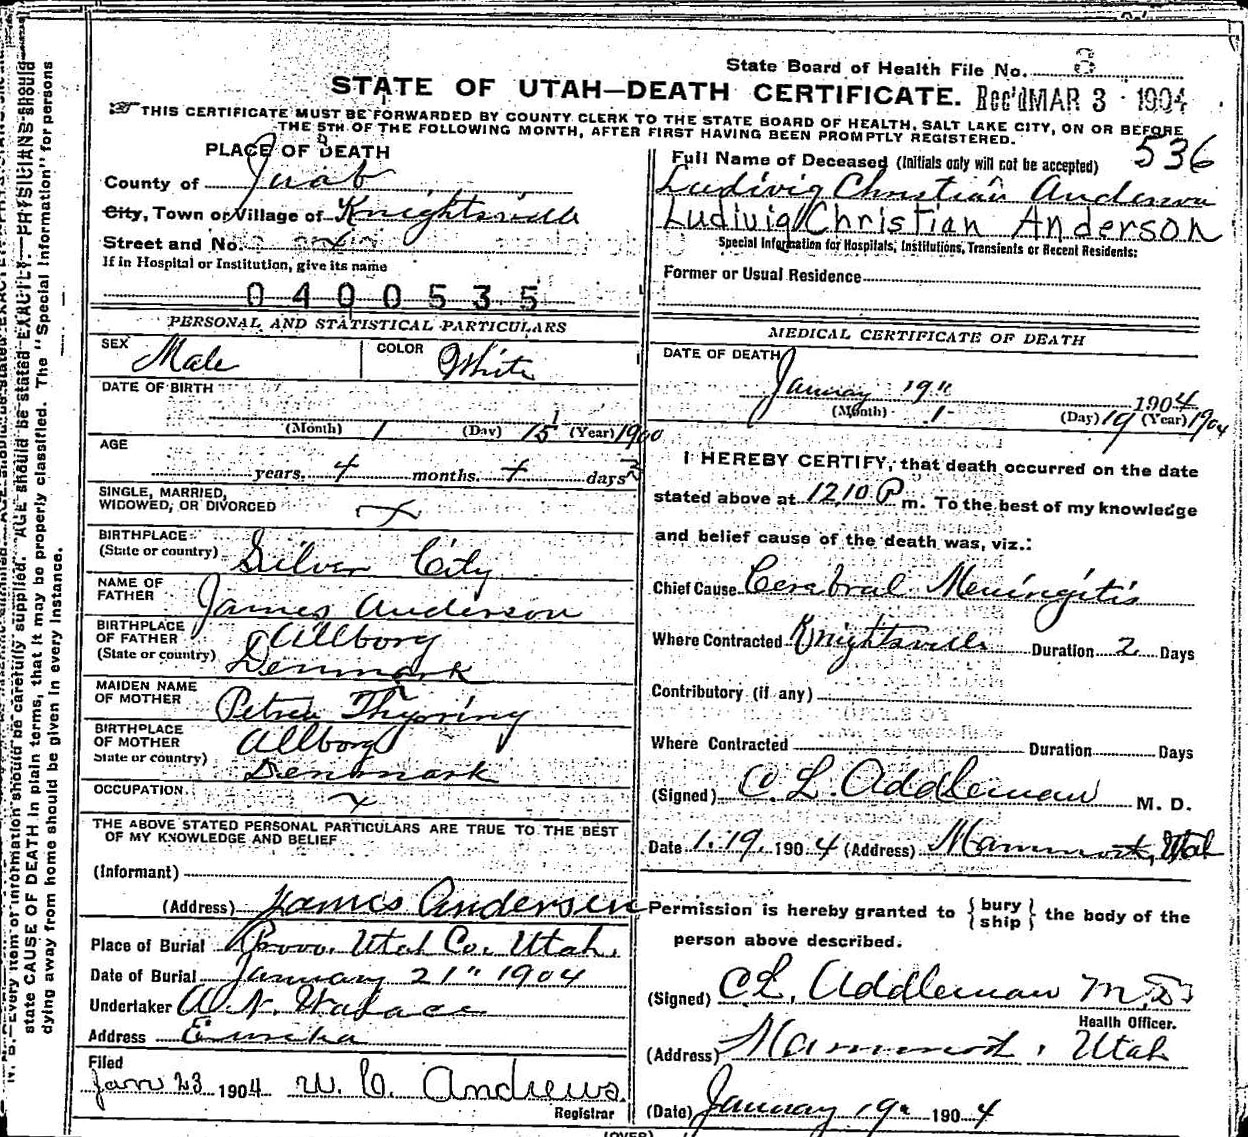 State Board of Health File No. 3
STATE OF UTAH—DEATH CERTIFICATE. Rec'd MAR 3 · 1904
THIS CERTIFICATE MUST BE FORWARDED BY COUNTY CLERK TO THE STATE BOARD OF HEALTH, SALT LAKE CITY, ON OR BEFORE
THE 5TH OF THE FOLLOWING MONTH, AFTER FIRST HAVING BEEN PROMPTLY REGISTERED.
536
PLACE OF DEATH
County of Juab
City, Town or Village of Knightsville
Street and No. x
If in Hospital or Institution, give its name
0400535
Full Name of Deceased (Initials only will not be accepted)
Ludivig Christian Anderson
Ludivig Christian Anderson
Special Information for Hospitals, Institutions, Transients or Recent Residents:
Former or Usual Residence
PERSONAL AND STATISTICAL PARTICULARS
SEX Male COLOR White
DATE OF BIRTH
(Month) 1 (Day) 15 (Year) 1900
AGE
years. 4 months. + days 3
SINGLE, MARRIED,
WIDOWED, OR DIVORCED x
BIRTHPLACE
(State or country) Silver City
NAME OF
FATHER James Anderson
BIRTHPLACE
OF FATHER Allborg
(State or country) Denmark
MAIDEN NAME
OF MOTHER Petrea
BIRTHPLACE
OF MOTHER Allborg
State or country) Denmark
OCCUPATION. x
THE ABOVE STATED PERSONAL PARTICULARS ARE TRUE TO THE BEST
OF MY KNOWLEDGE AND BELIEF
(Informant)
(Address) James Andersen
Place of Burial Provo. Utah Co. Utah.
Date of Burial January 21" 1904
Undertaker A. N. Wallace
Address Eureka
Filed
Jan 23 1904 W. C. Andrews.
Registrar
MEDICAL CERTIFICATE OF DEATH
DATE OF DEATH
January 19" 1904
(Month) 1 (Day) 19 (Year) 1904
I HEREBY CERTIFY, that death occurred on the date
stated above at 12,10 P m. To the best of my knowledge
and belief cause of the death was, viz.:
Chief Cause Cerebral Meningitis
Where Contracted Knightsville Duration 2 Days
Contributory (if any)
Where Contracted Duration Days
(Signed) C. L. Addleman M. D.
Date 1.19. 1904 (Address) Mammoth, Utah
Permission is hereby granted to {bury
ship} the body of the
person above described.
(Signed) C L. Addleman M.D.
Health Officer.
(Address) Mammoth, Utah
(Date) January 19" 1904
(OVER)
N. B.—Every item of information should be carefully supplied. AGE should be stated EXACTLY. PHYSICIANS should
state CAUSE OF DEATH in plain terms, that it may be properly classified. The "Special Information" for persons
dying away from home should be given in every instance.